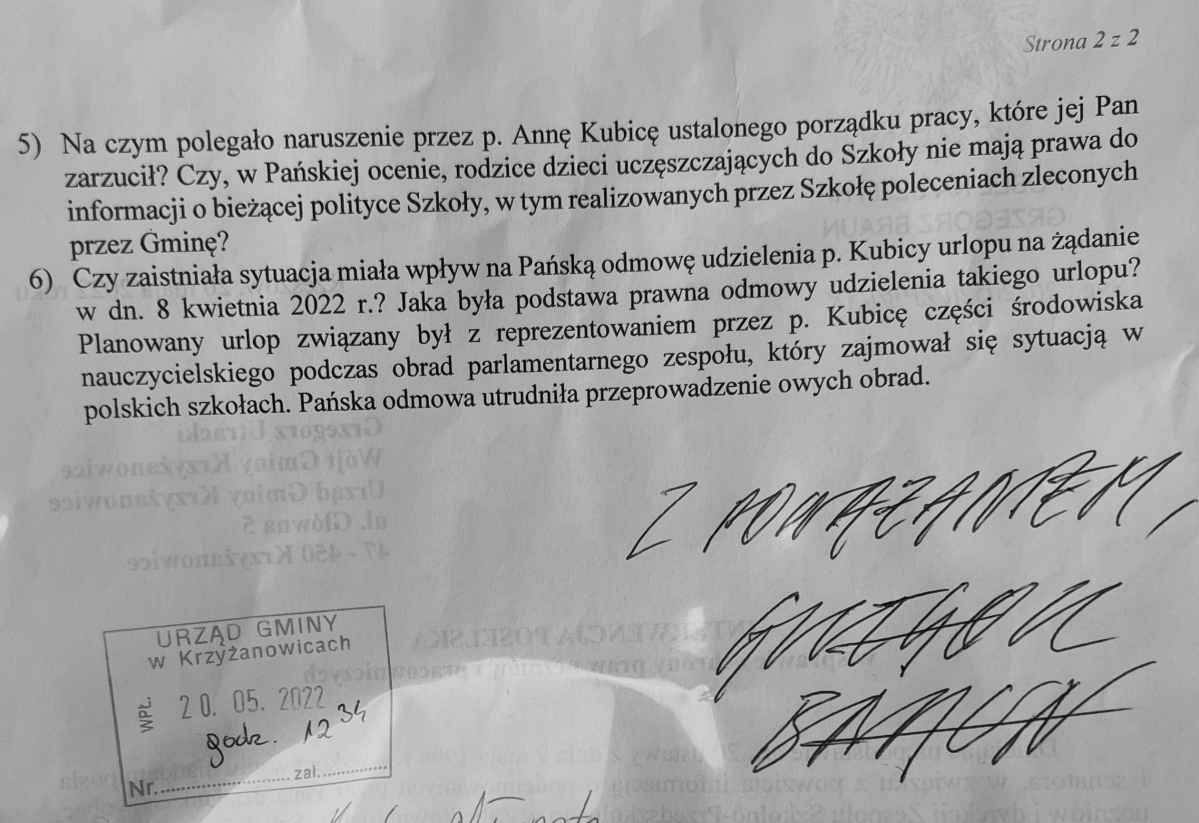 Strona 2 z 2
5) Na czym polegało naruszenie przez p. Annę Kubicę ustalonego porządku pracy, które jej Pan
zarzucił? Czy, w Pańskiej ocenie, rodzice dzieci uczęszczających do Szkoły nie mają prawa do
informacji o bieżącej polityce Szkoły, w tym realizowanych przez Szkołę poleceniach zleconych
przez Gminę?
6) Czy zaistniała sytuacja miała wpływ na Pańską odmowę udzielenia p. Kubicy urlopu na żądanie
w dn. 8 kwietnia 2022 r.? Jaka była podstawa prawna odmowy udzielenia takiego urlopu?
Planowany urlop związany był z reprezentowaniem przez p. Kubicę części środowiska
nauczycielskiego podczas obrad parlamentarnego zespołu, który zajmował się sytuacją w
polskich szkołach. Pańska odmowa utrudniła przeprowadzenie owych obrad.
Z POWAŻANIEM,
GRZEGORZ
BRAUN
URZĄD GMINY
w Krzyżanowicach
WPŁ. 20. 05. 2022
godz. 12 34
Nr. .................... zał. ..............